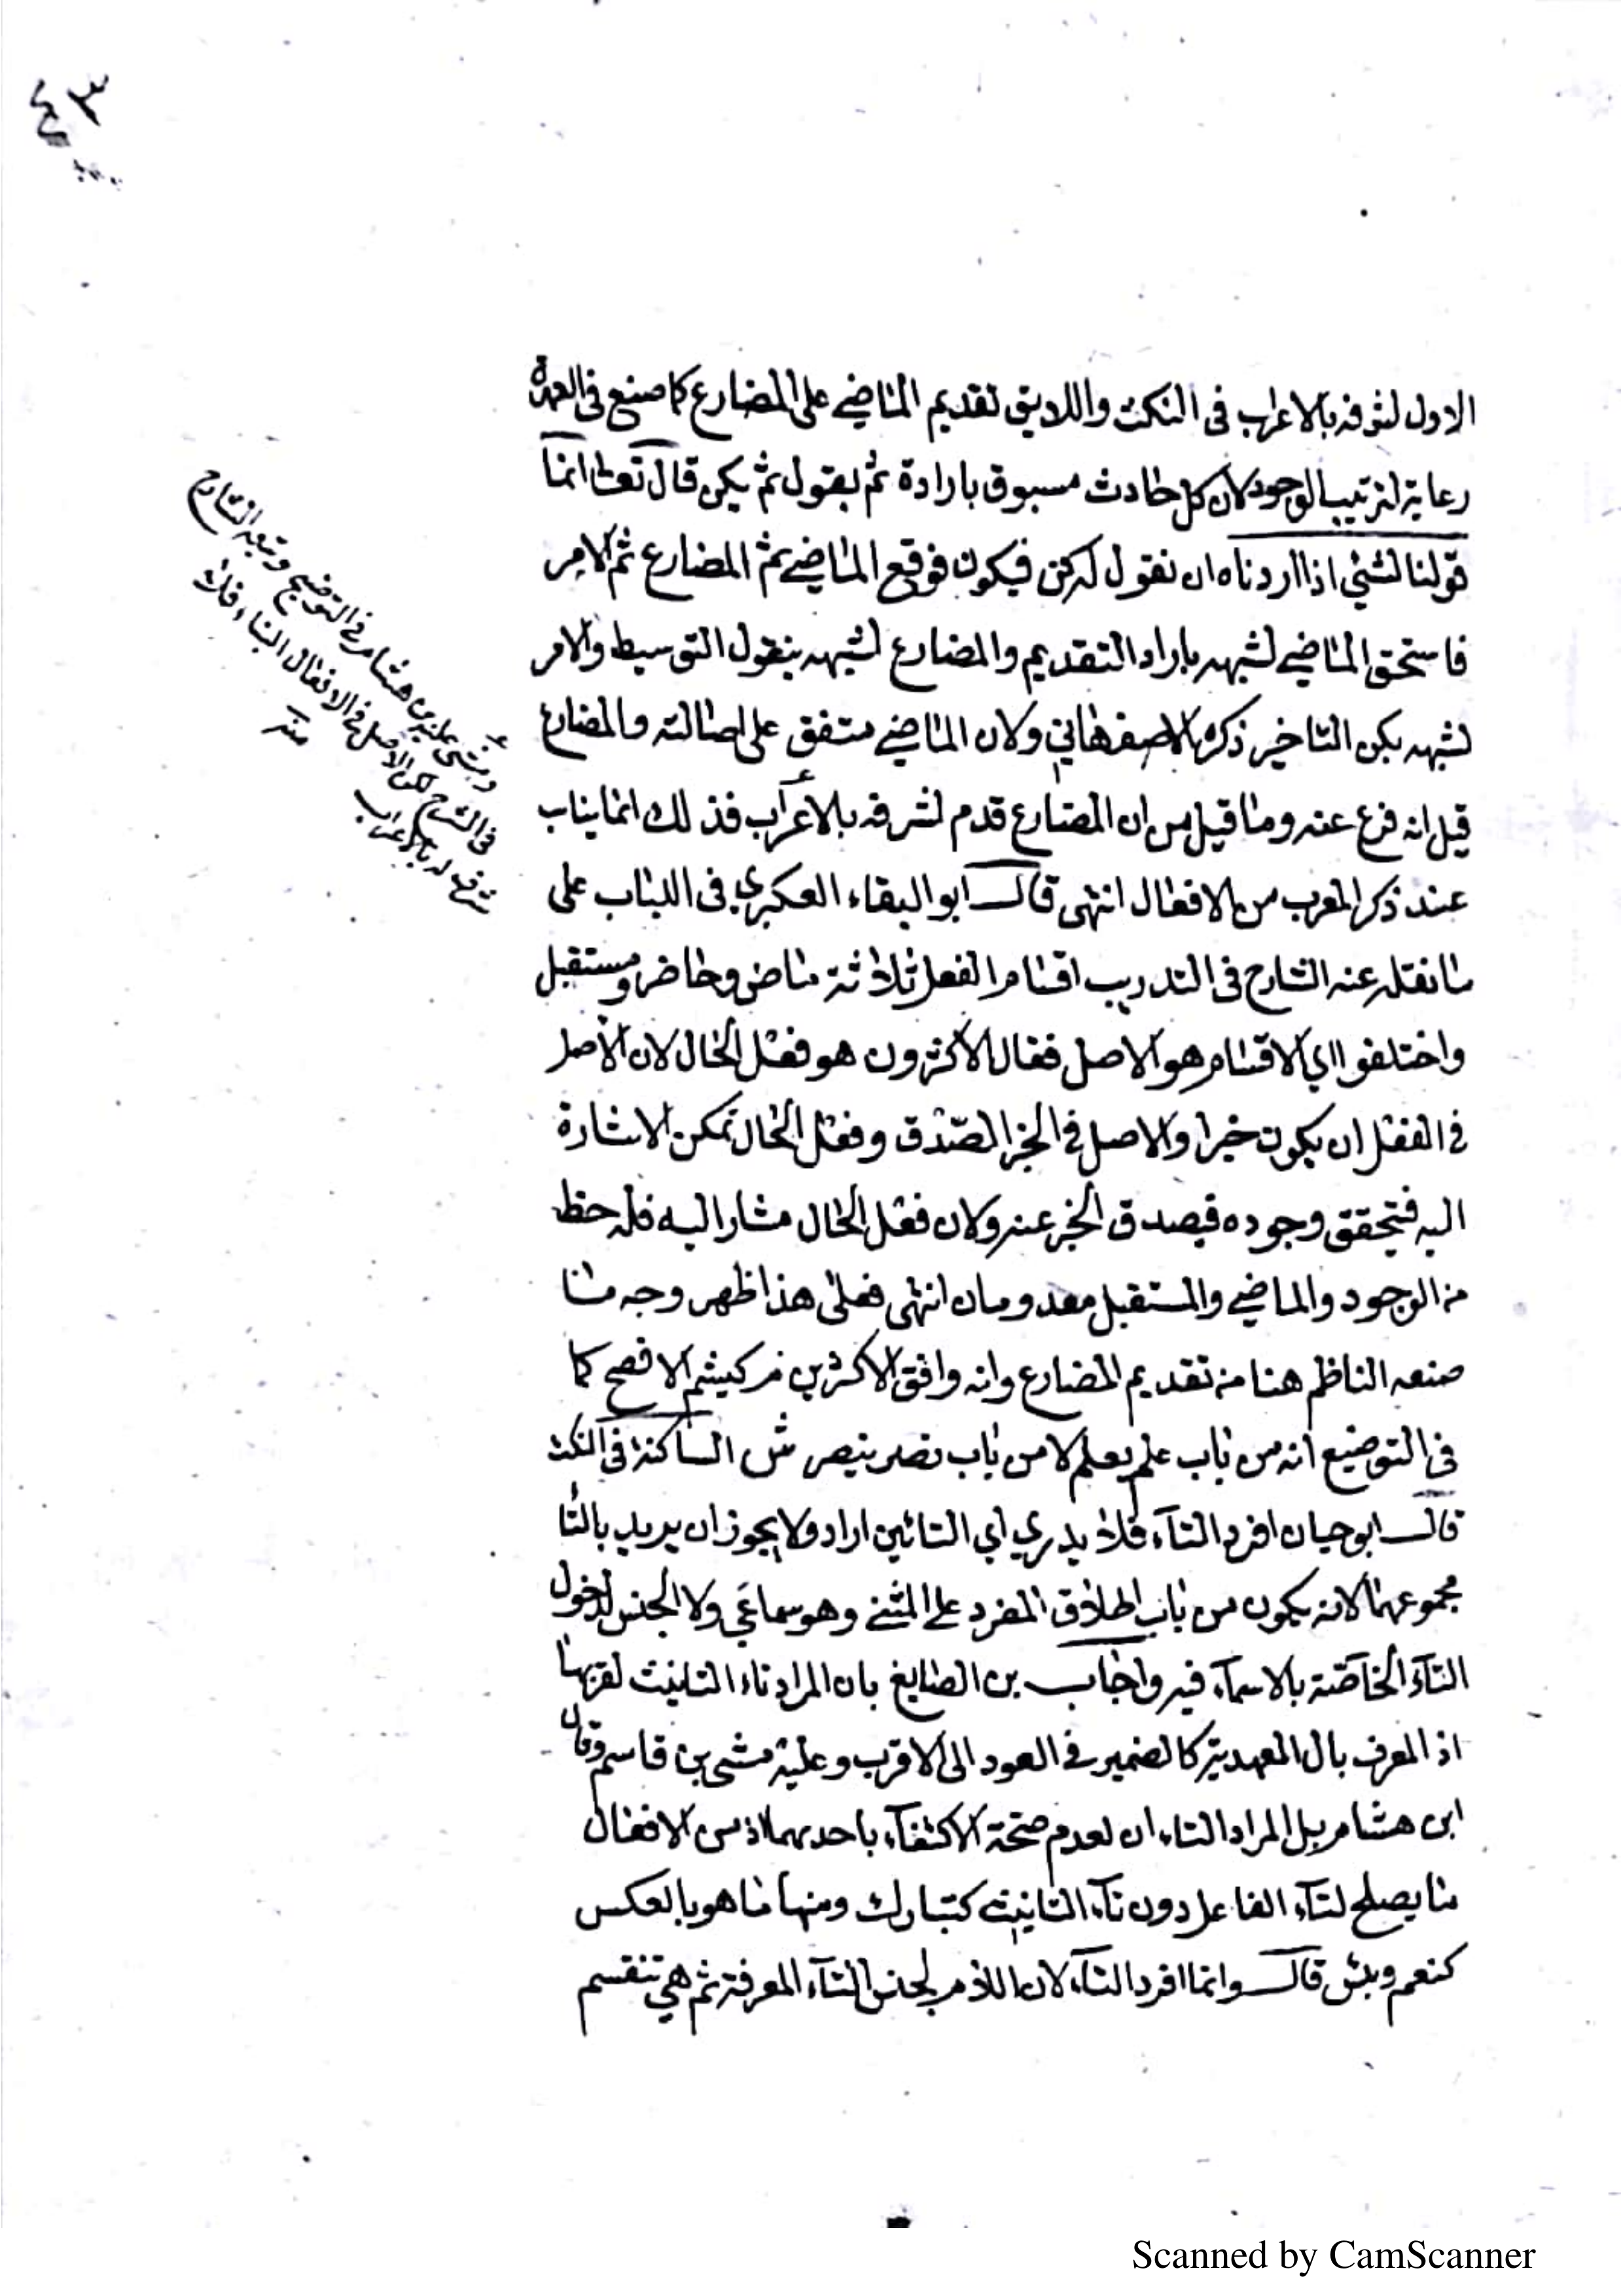 ٤٣
الاول لشرفه بالاعراب فى النكت واللايق تقديم الماضي على المضارع كما صنع فى العمدة
رعاية لترتيب الوجود لان كل حادث مسبوق بارادة ثم بقول ثم يكن قال تعالى انما
قولنا لشئي اذا اردناه ان نقول له كن فيكون فوقع الماضي ثم المضارع ثم الامر
فاستحق الماضي لشبهه باراد التقديم والمضارع لشبهه بنقول التوسيط والامر
لشبهه بكن التاخير ذكره الاصفهاني ولان الماضي متفق على اصالته والمضارع
قيل انه فرع عنه وما قيل من ان المضارع قدم لشرفه بالاعراب فذلك انما يناب
عند ذكر المعرب من الافعال انتهى قال ابو البقاء العكبري فى اللباب على
ما نقله عنه الشارح فى التدريب اقسام الفعل ثلاثة ماض وحاضر ومستقبل
واختلفوا اي الاقسام هو الاصل فقال الاكثرون هو فعل الحال لان الاصل
فى الفعل ان يكون خبرا والاصل فى الخبر الصدق وفعل الحال تمكن الاشارة
اليه فتحقق وجوده فيصدق الخبر عنه ولان فعل الحال مشارا اليه فله حظ
من الوجود والماضي والمستقبل معدومان انتهى فعلى هذا ظهر وجه ما
صنعه الناظم هنا من تقديم المضارع وانه وافق الاكثرين فر كيشم الافصح كما
فى التوضيع انه من باب علم يعلم لا من باب نصر ينصر ش الساكنة فى النكت
قال ابو حيان افرد التآء فلا يدري اي التائين اراد ولا يجوز ان يريد بالتا
مجموعهما لانه يكون من باب اطلاق المفرد على المثنى وهو سماعي ولا الجنس لدخول
التآء الخاصة بالاسمآء فيه واجاب بن الصايغ بان المراد تاء التانيث لقربها
اذ المعرف بال العهدية كالضمير فى العود الى الاقرب وعليه مشى بن قاسم وقال
ابن هشام بل المراد التاءان لعدم صحة الاكتفآء باحديهما اذ من الافعال
ما يصلح لتآء الفاعل دون تآء التانيث كتبارك ومنها ما هو بالعكس
كنعم وبئس قال وانما افرد التآء لان اللام لجنس التآء المعرفة ثم هي تنقسم
ومشى عليه بن هشام فى التوضيح وتبعه الشارح
فى الشرح لكن الاصل فى الافعال البناء فلا
شرف له بالاعراب
منه
Scanned by CamScanner